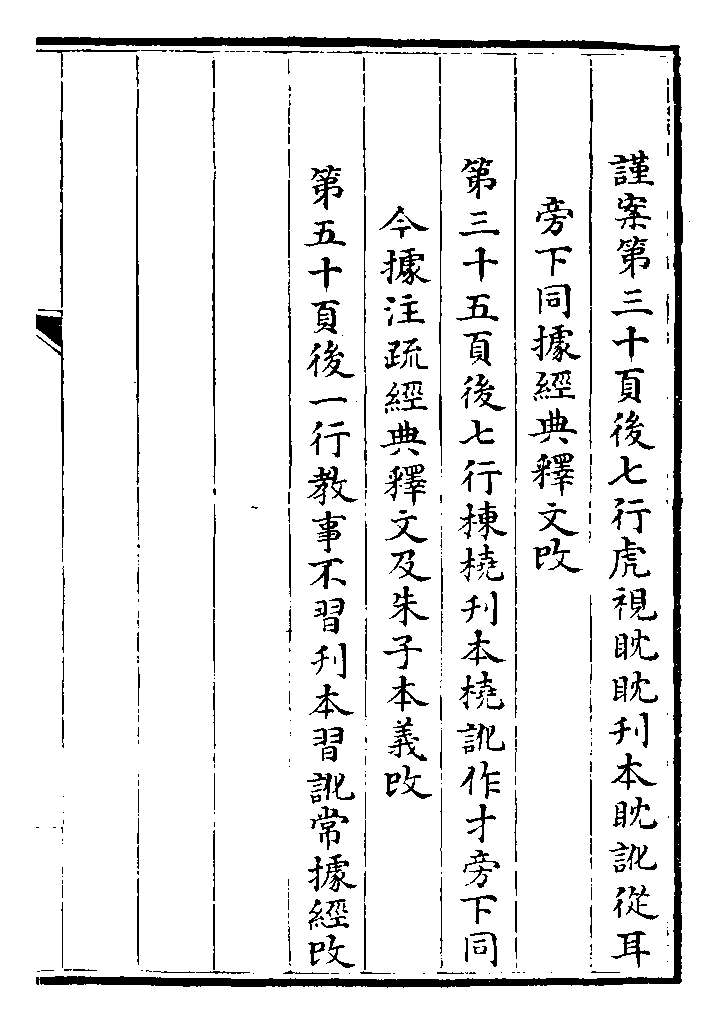 謹案第三十頁後七行虎視眈眈刊本眈訛從耳
旁下同據經典釋文改
第三十五頁後七行棟橈刊本橈訛作才旁下同
今據注疏經典釋文及朱子本義改
第五十頁後一行教事不習刊本習訛常據經改